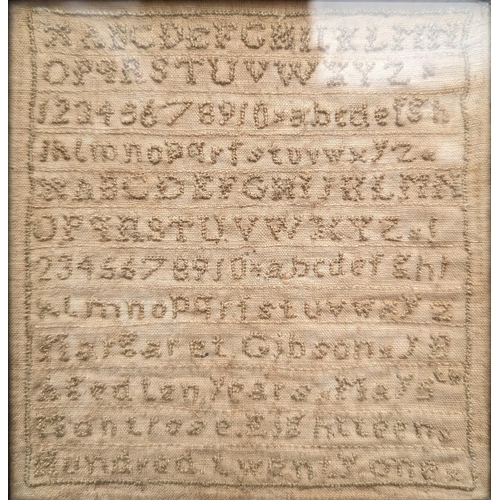 ABCDEFGHIJKLMN
OPQRSTUVWXYZ
12345678910abcdefgh
iklmnopqrſstuvwxyz
ABCDEFGHIJKLMN
OPQRSTUVWXYZ1
2345678910abcdefghi
klmnopqrſstuvwxyz
Margaret Gibson
Aged ten years May 8th
Montrose Eighteen
Hundred twenty one